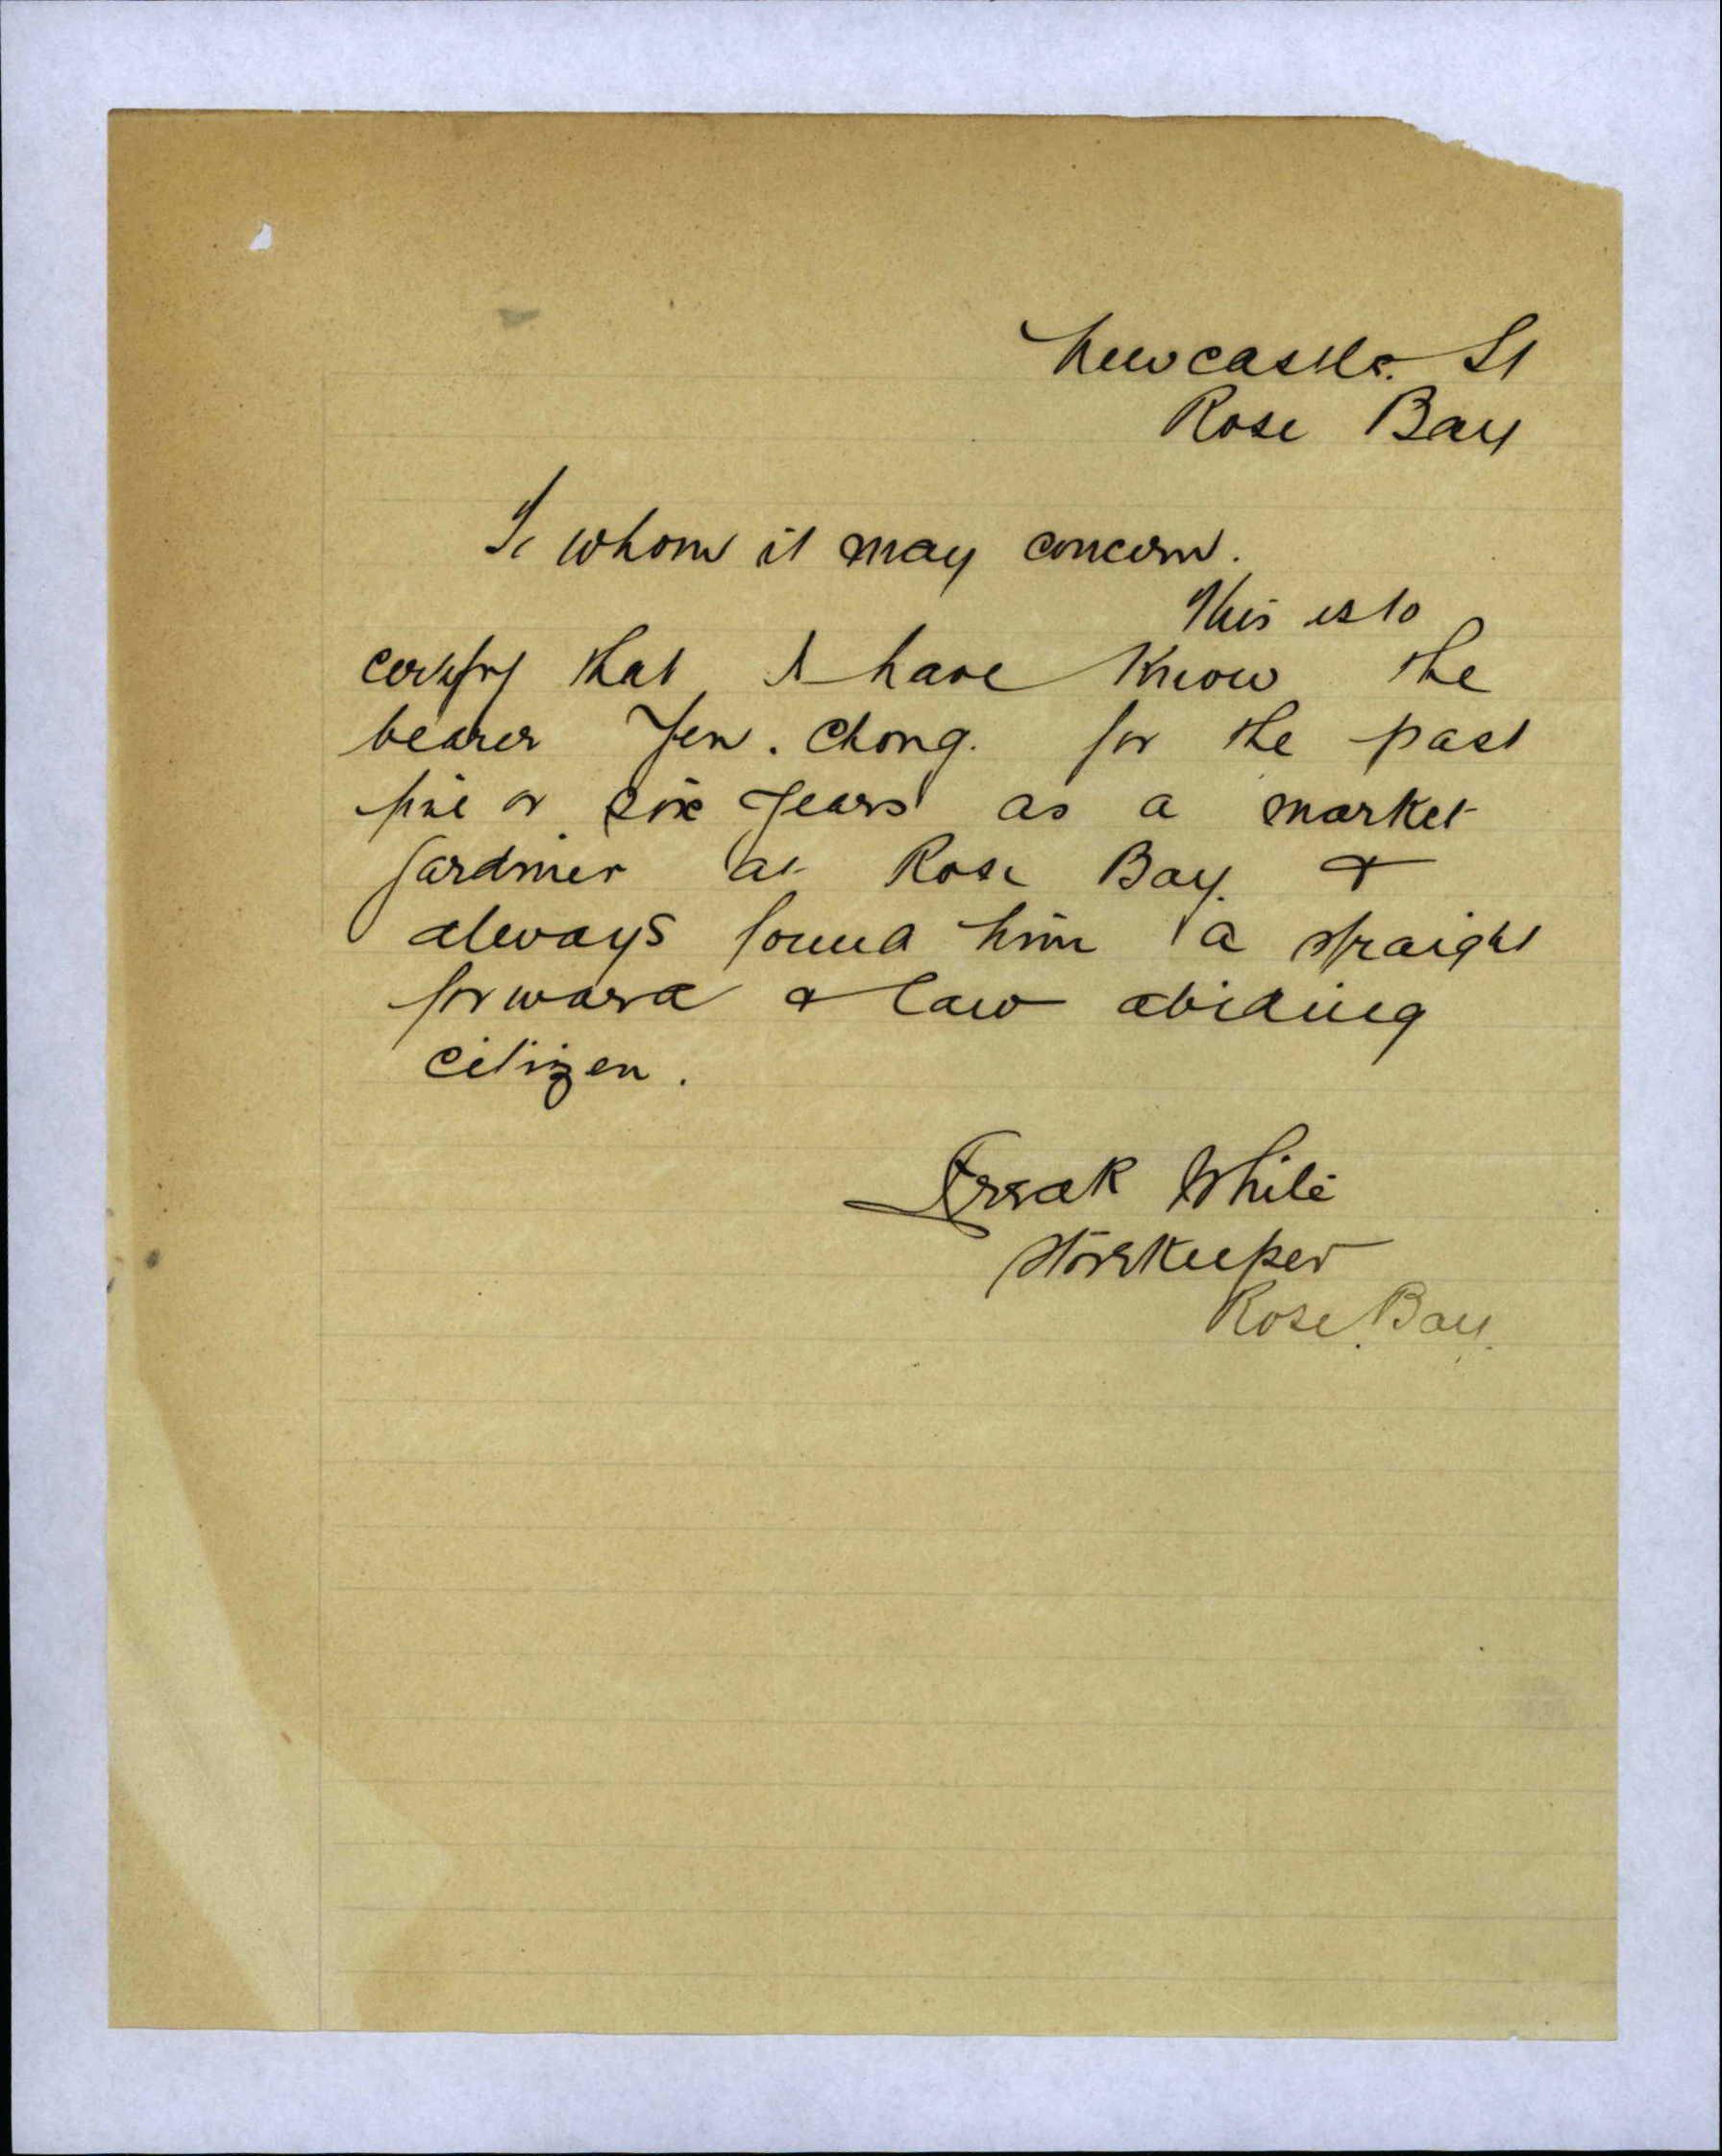 Newcastle St
Rose Bay
To whom it may concern.
This is to
certify that I have know the
bearer Yen. Chong. for the past
five or six years as a market
gardner at Rose Bay. &
always found him a straight
forward & law abiding
citizen.
White
Storekeeper
Rose Bay.